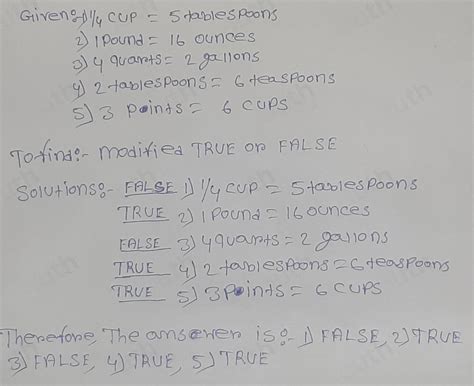 Given:- 1) 1/4 CUP = 5 tablespoons
2) 1 Pound = 16 ounces
3) 4 quarts = 2 gallons
4) 2 tablespoons = 6 teaspoons
5) 3 Points = 6 CUPS
To find:- modified TRUE or FALSE
Solutions:- FALSE 1) 1/4 CUP = 5 tablespoons
TRUE 2) 1 Pound = 16 ounces
FALSE 3) 4 quarts = 2 gallons
TRUE 4) 2 tablespoons = 6 teaspoons
TRUE 5) 3 Points = 6 CUPS
Therefore, The answer is:- 1) FALSE, 2) TRUE
3) FALSE, 4) TRUE, 5) TRUE